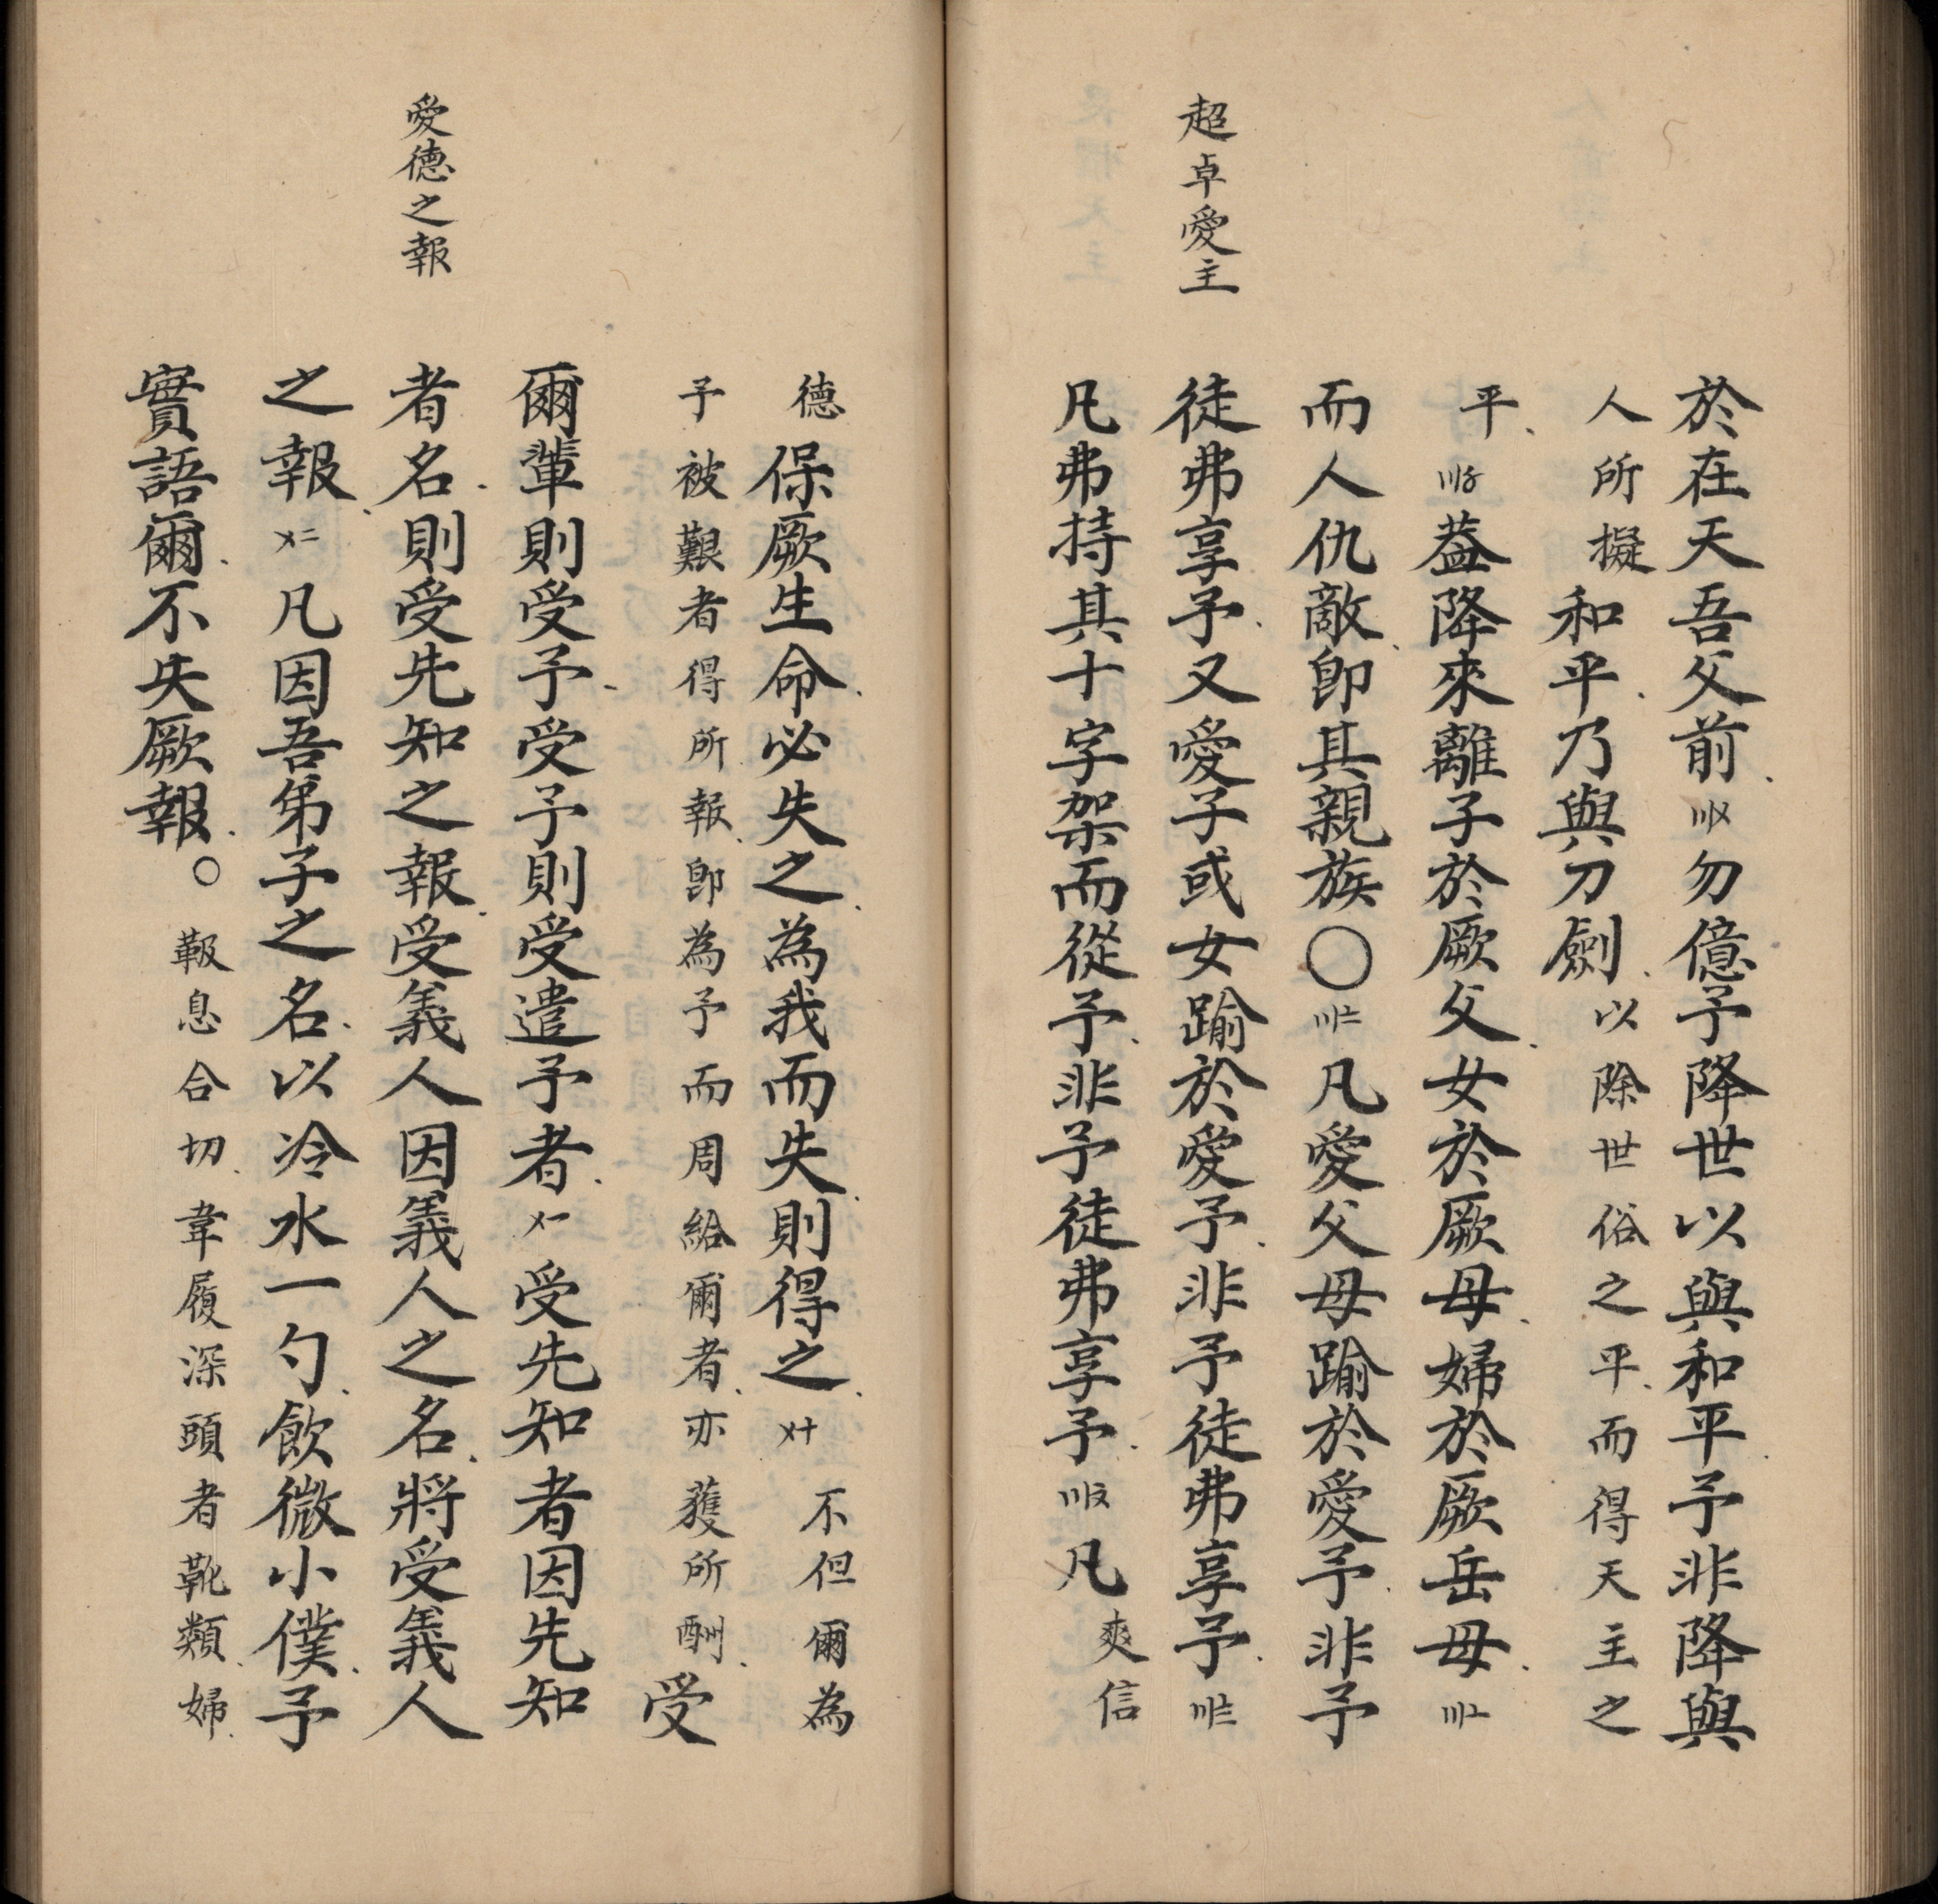 超卓愛主
於在天吾父前〣〤勿億予降世以與和平予非降與
人所擬和平乃與刀劍以除世俗之平而得天主之
平〣〥葢降來離子於厥父女於厥母婦於厥岳母〣〦
而人仇敵卽其親族〇〣〧凡愛父母踰於愛予非予
徒弗享予又愛子或女踰於愛予非予徒弗享予〣〨
凡弗持其十字架而從予非予徒弗享予凡爽信
愛德之報
德保厥生命必失之為我而失則得之〤十不但爾為
予被艱者得所報卽為予而周給爾者亦蒦所酬受
爾輩則受予受予則受遣予者〤一受先知者因先知
者名則受先知之報受義人因義人之名將受義人
之報〤二凡因吾弟子之名以冷水一勺飲微小僕予
實語爾不失厥報〇靸息合切韋履深頭者靴類婦